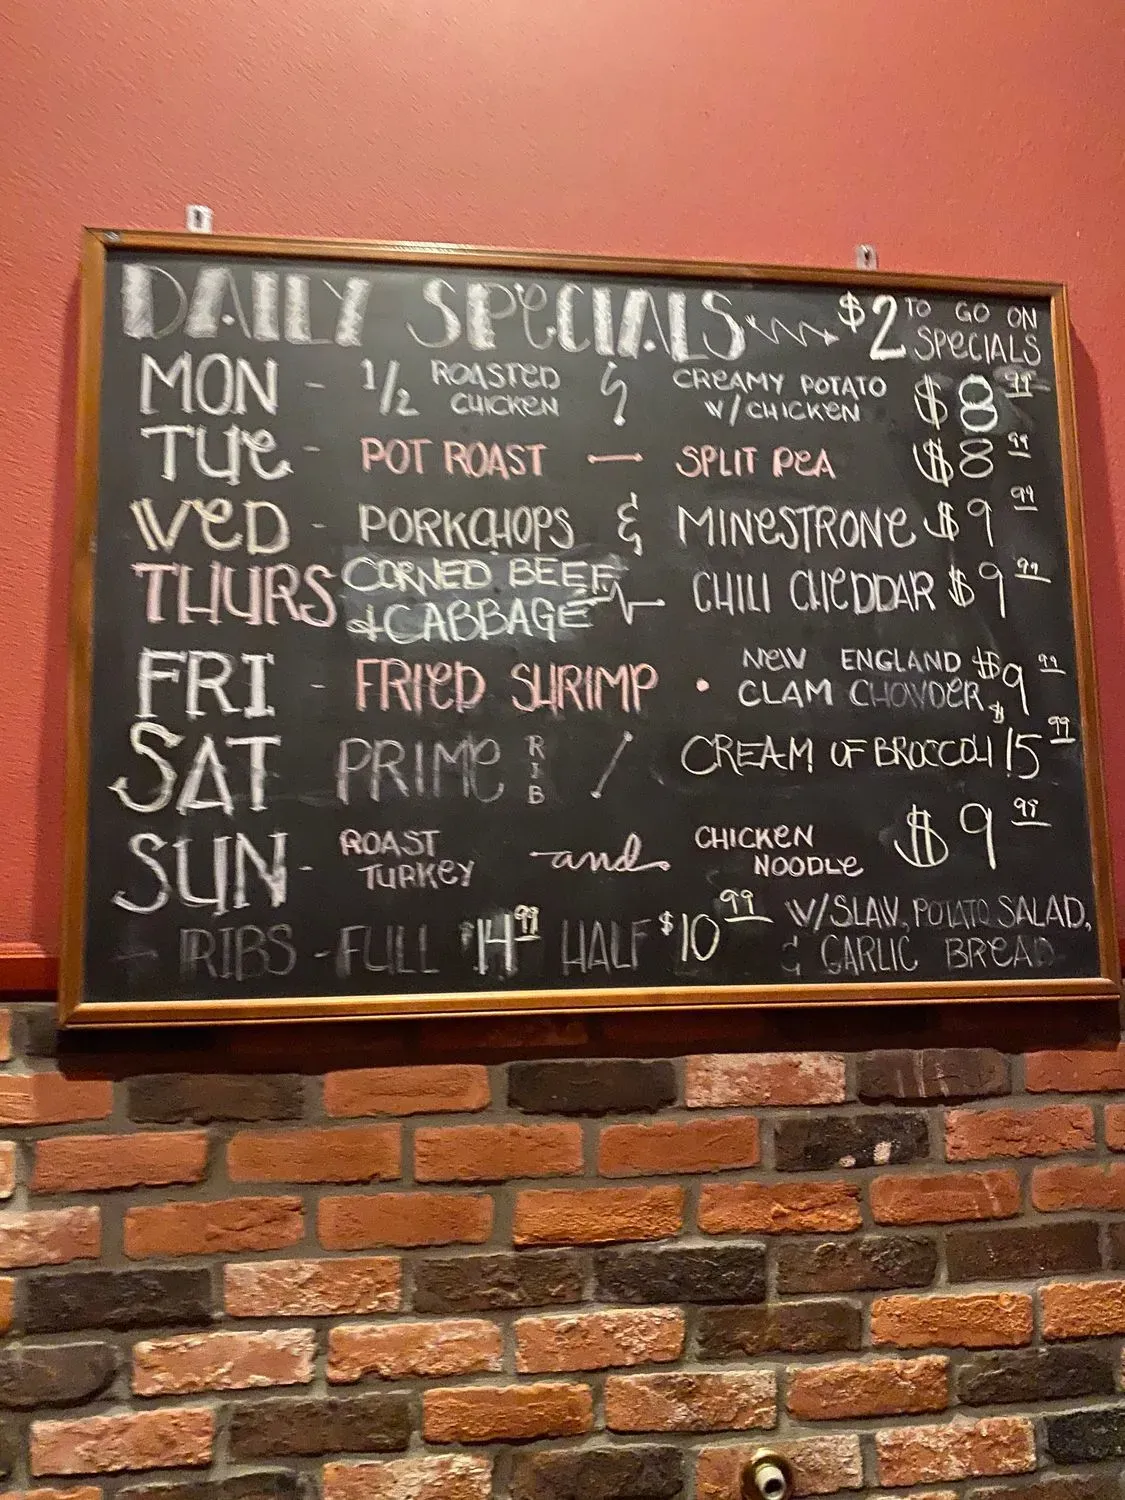 DAILY SPECIALS $2 TO GO ON SPECIALS
MON - 1/2 ROASTED CHICKEN & CREAMY POTATO W/ CHICKEN $8.99
TUE - POT ROAST — SPLIT PEA $8.99
WED - PORKCHOPS & MINESTRONE $9.99
THURS CORNED BEEF & CABBAGE CHILI CHEDDAR $9.99
FRI - FRIED SHRIMP • NEW ENGLAND CLAM CHOWDER $9.99
SAT PRIME RIB / CREAM OF BROCCOLI $15.99
SUN - ROAST TURKEY and CHICKEN NOODLE $9.99
- RIBS - FULL $14.99 HALF $10.99 W/SLAW, POTATO SALAD, & GARLIC BREAD